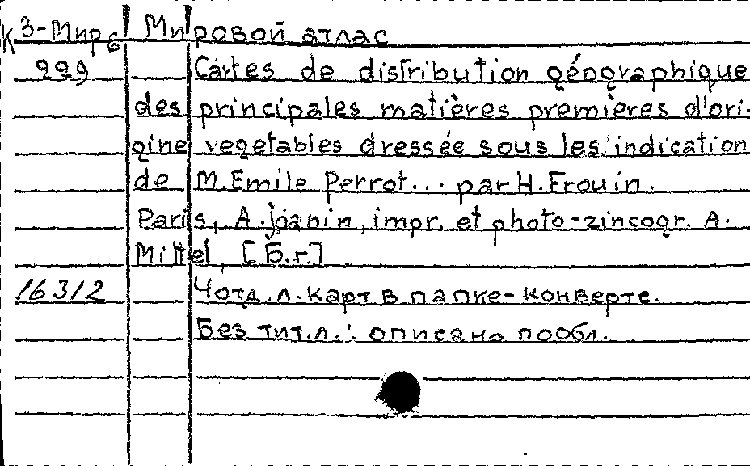 К 3-Мир6 Мировой атлас
999 Cartes de distribution géographique
des principales matières premières d'ori-
gine vegetables dressée sous les indication
de M. Emile Perrot... par H. Frouin.
Paris, A. Joanin, impr. et photo-zincogr. A.
[Б.г.]
16312 4 отд. л. карт в папке-конверте.
Без тит. л.: описано по обл.